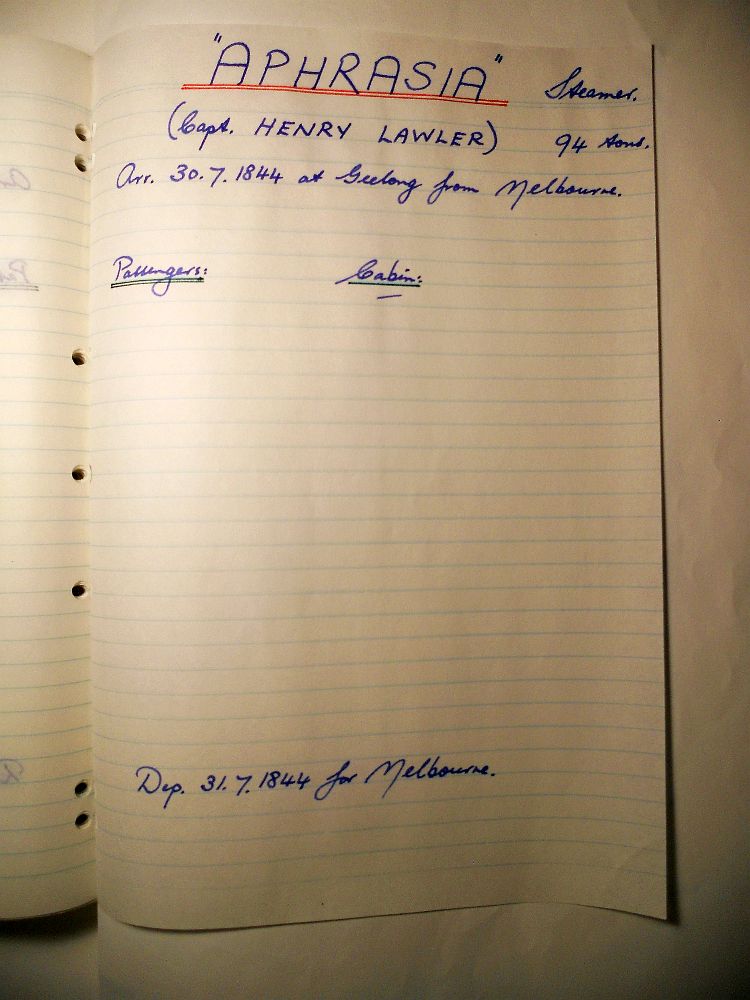 "APHRASIA" Steamer.
(Capt. HENRY LAWLER) 94 tons.
Arr. 30.7.1844 at Geelong from Melbourne.
Passengers: Cabin:
Dep. 31.7.1844 for Melbourne.